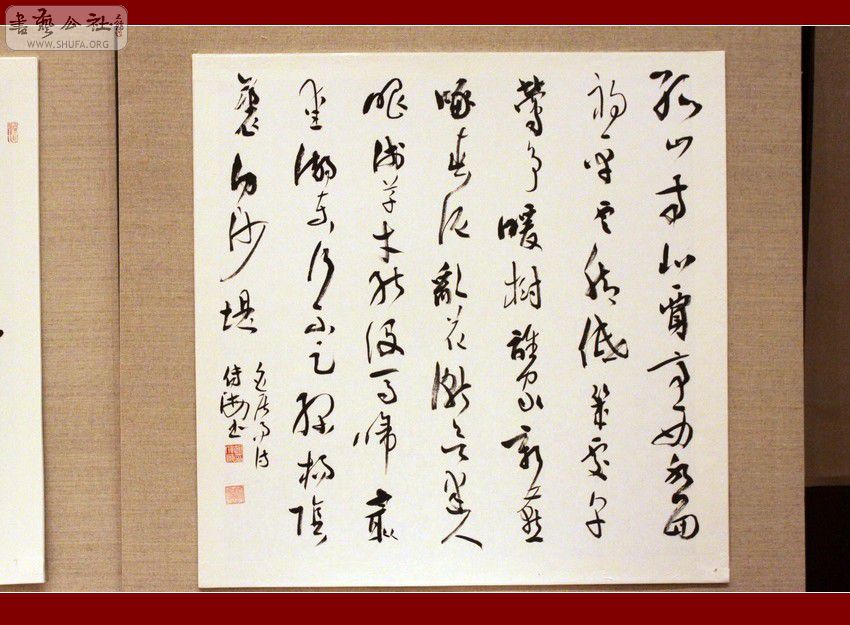 書藝公社
WWW.SHUFA.ORG
孤山寺北賈亭西水面
初平雲腳低幾處早
鶯爭暖樹誰家新燕
啄春泥亂花漸欲迷人
眼淺草才能沒馬蹄最
愛湖東行不足綠楊陰
裏白沙堤
白居易詩
海書